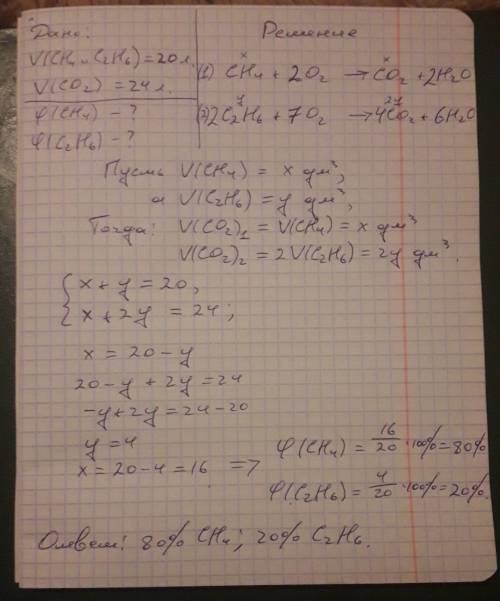 Дано:
V(CH₄ и C₂H₆) = 20 л.
V(CO₂) = 24 л.
φ(CH₄) - ?
φ(C₂H₆) - ?
Решение
x x
(1) CH₄ + 2O₂ → CO₂ + 2H₂O
y 2y
(2) 2C₂H₆ + 7O₂ → 4CO₂ + 6H₂O
Пусть V(CH₄) = x дм³,
а V(C₂H₆) = y дм³,
Тогда: V(CO₂)₁ = V(CH₄) = x дм³
V(CO₂)₂ = 2V(C₂H₆) = 2y дм³.
{ x + y = 20,
x + 2y = 24;
x = 20 - y
20 - y + 2y = 24
-y + 2y = 24 - 20
y = 4
x = 20 - 4 = 16 =>
φ(CH₄) = 16/20 · 100% = 80%
φ(C₂H₆) = 4/20 · 100% = 20%.
Ответ: 80% CH₄; 20% C₂H₆.